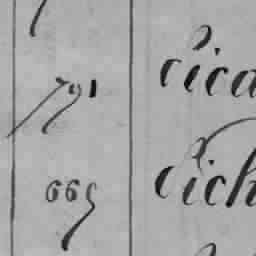 791 cica
665 cich